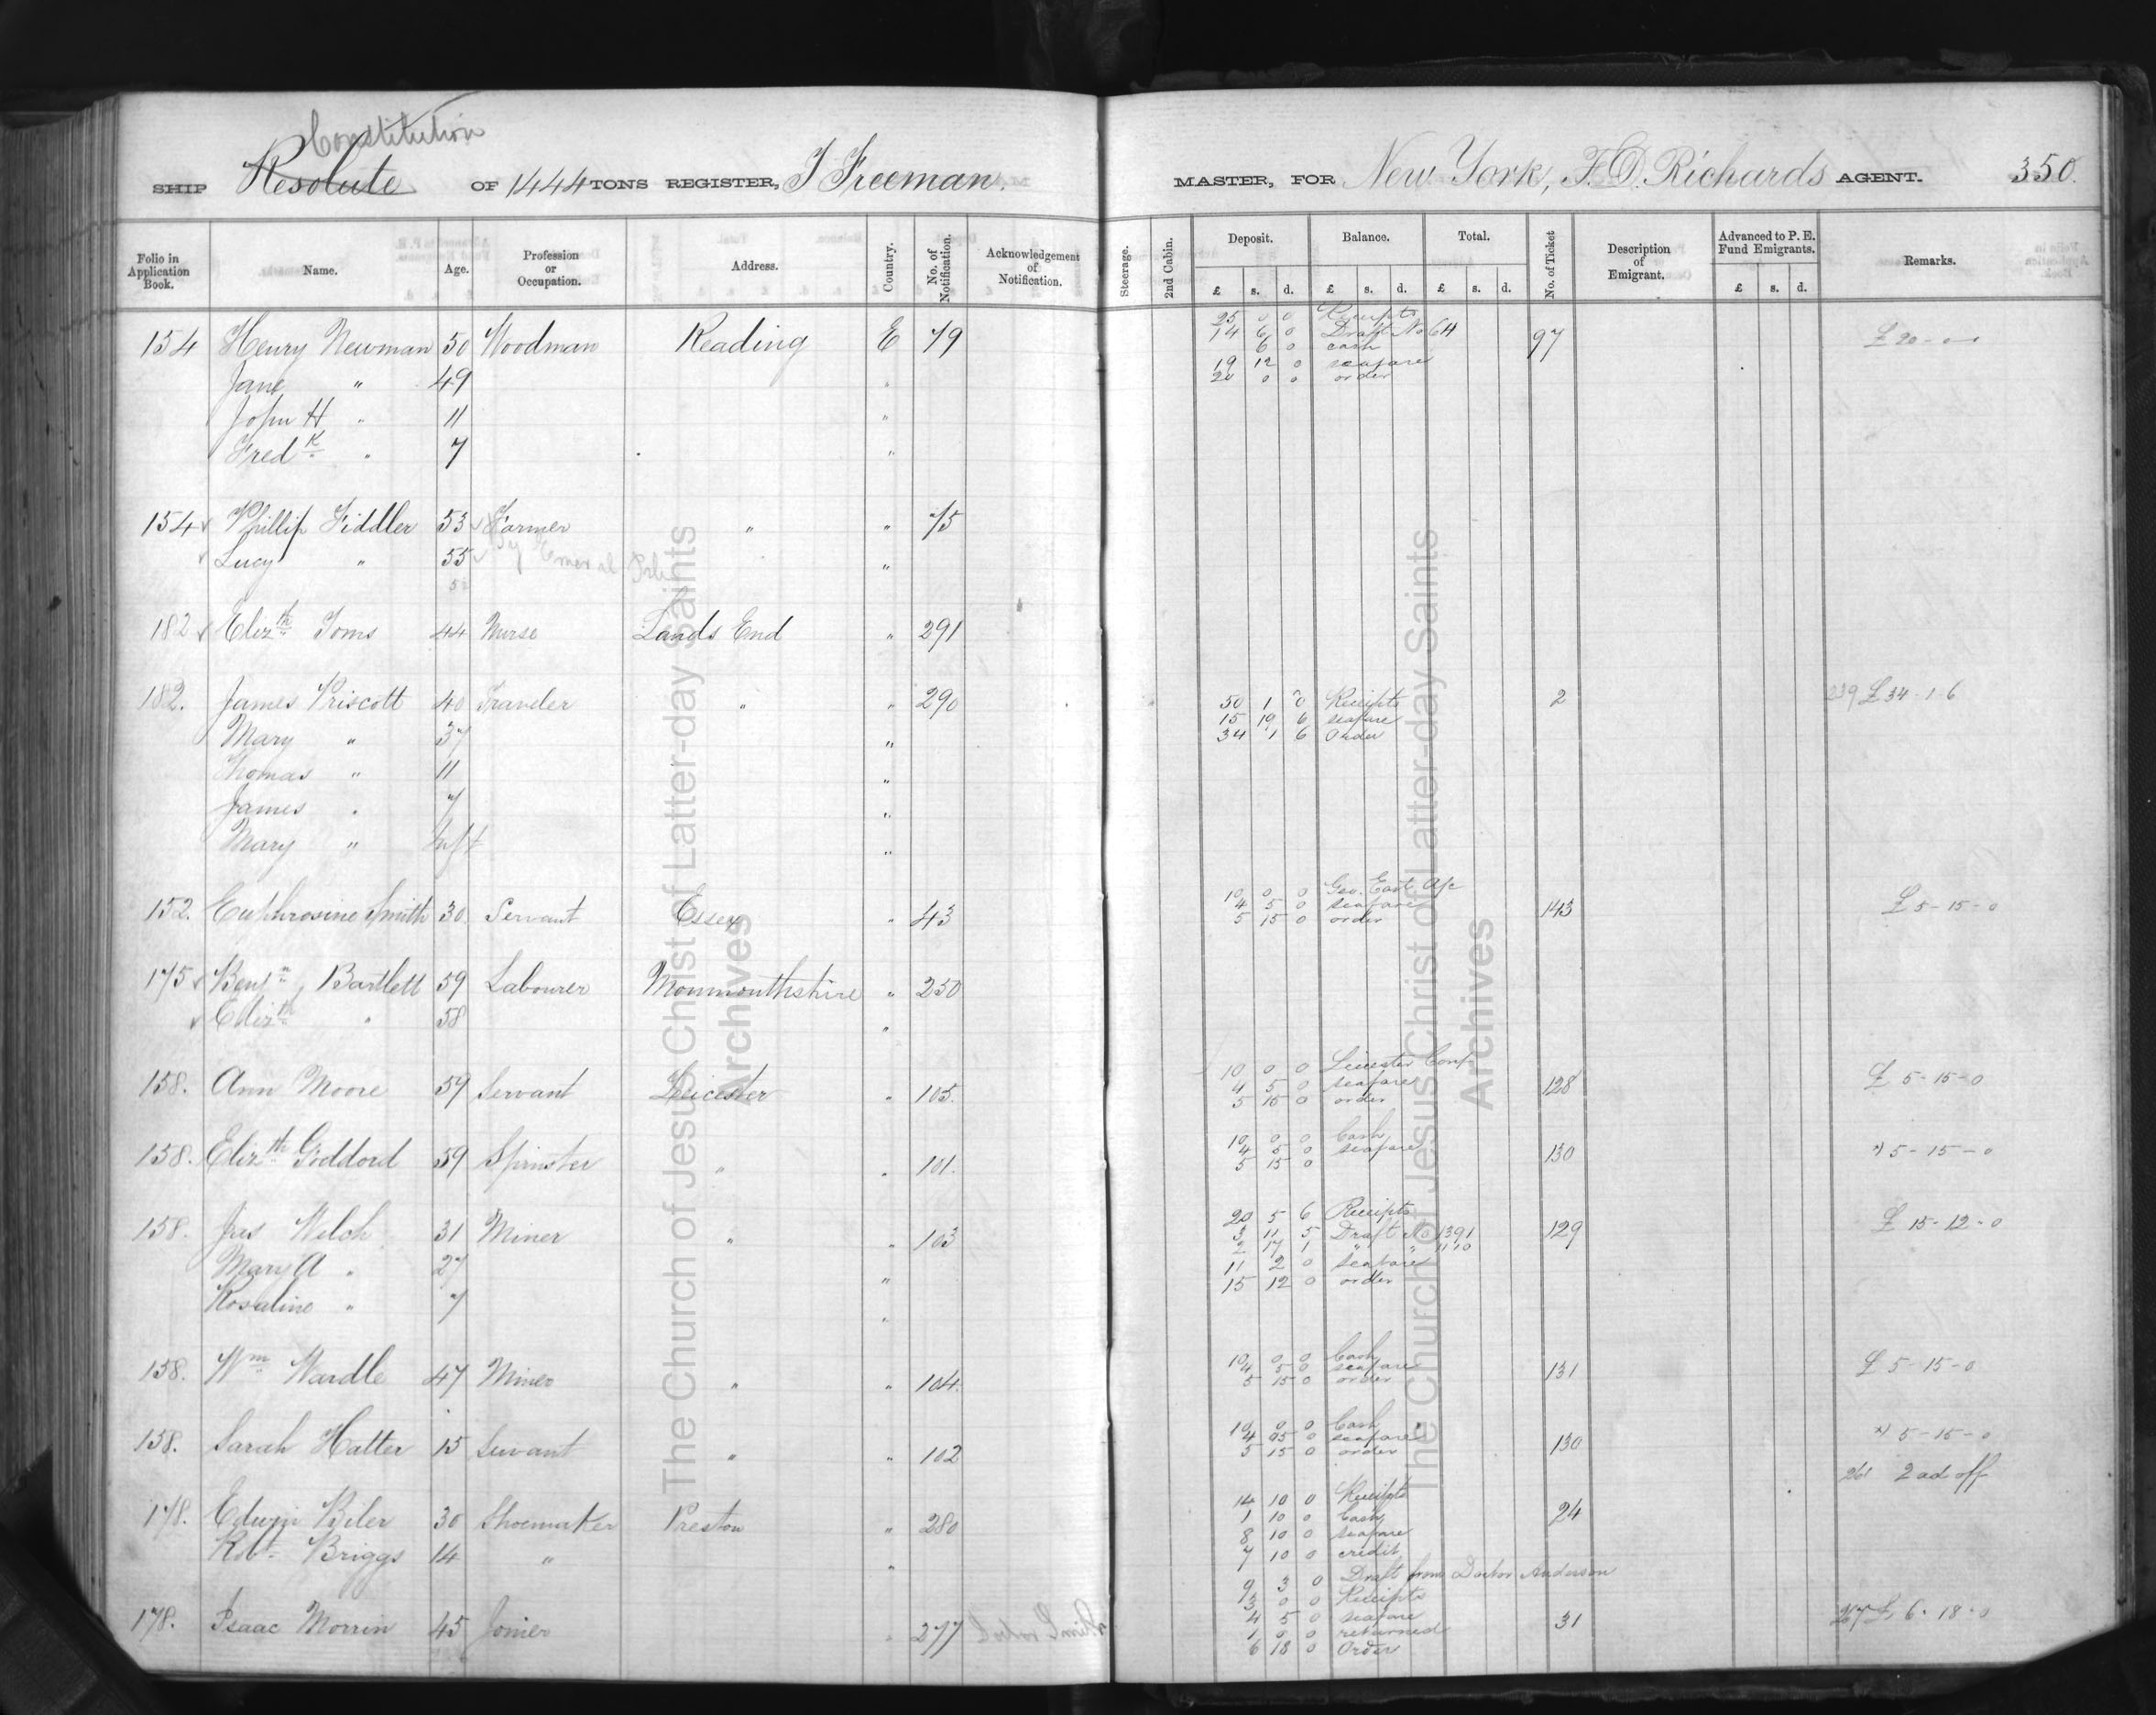 Constitution
SHIP Resolute OF 1444 TONS REGISTER, J Freeman. MASTER, FOR New York, F. D. Richards AGENT. 350.
Folio in Application Book. Name. Age. Profession or Occupation. Address. Country. No. of Notification. Acknowledgement of Notification. Steerage. 2nd Cabin. Deposit. Balance. Total. No. of Ticket Description of Emigrant. Advanced to P. E. Fund Emigrants. Remarks.
£ s. d. £ s. d. £ s. d. £ s. d.
25 0 0 Receipts
14 6 0 Draft No 64
154 Henry Newman 50 Woodman Reading E 79 6 0 cash 97 £ 20-0-0
19 12 0 seafare
Jane " 49 20 0 0 order
John H " 11 "
Fredk " 7 "
154 Phillip Fiddler 53 Farmer " " 75
Lucy " 55 "
182 Elizth Toms 44 Nurse Lands End " 291
182. James Priscott 40 Traveler " " 290 50 1 0 Receipts 2 £ 34-1-6
15 19 6 seafare
Mary " 37 " 34 1 6 Order
Thomas " 11 "
James " 7 "
Mary " Inft "
10 0 0 Geo. East a/c
4 5 0 seafare
152. Euphrosine Smith 30. Servant Essex " 43 5 15 0 order 143 £ 5-15-0
175 Benjn Bartlett 59 Labourer Monmouthshire " 250
Elizth " 58 "
10 0 0 Leicester Conf
158. Ann Moore 59 Servant Leicester " 105. 4 5 0 seafare 128 £ 5-15-0
5 15 0 order
10 0 0 Cash
4 5 0 seafare
158. Elizth Goddord 59 Spinster " " 101. 5 15 0 130 " 5-15-0
20 5 6 Receipts
158. Jas Welch 31 Miner " " 103 3 11 5 Draft No 1391 129 £ 15-12-0
2 17 1 " "
Mary A " 27 " 11 2 0 seafare
15 12 0 order
Rosaline " 7 "
10 0 0 Cash
4 5 0 seafare
158. Wm Wardle 47 Miner " " 104. 5 15 0 order 131 £ 5-15-0
10 0 0 Cash
4 5 0 seafare
158. Sarah Hatter 15 Servant " " 102 5 15 0 order 130 " 5-15-0
2 ad off
14 10 0 Receipts
178. Edwin Biler 30 Shoemaker Preston " 280 1 10 0 Cash 24
8 10 0 seafare
Robt Briggs 14 " " 7 10 0 credit
9 3 0 Draft from Doctor Anderson
3 0 0 Receipts
4 5 0 seafare
178. Isaac Morrin 45 Joiner " 277 1 0 0 returned 31 £ 6-18-0
6 18 0 Order
The Church of Jesus Christ of Latter-day Saints
Archives
The Church of Jesus Christ of Latter-day Saints
Archives